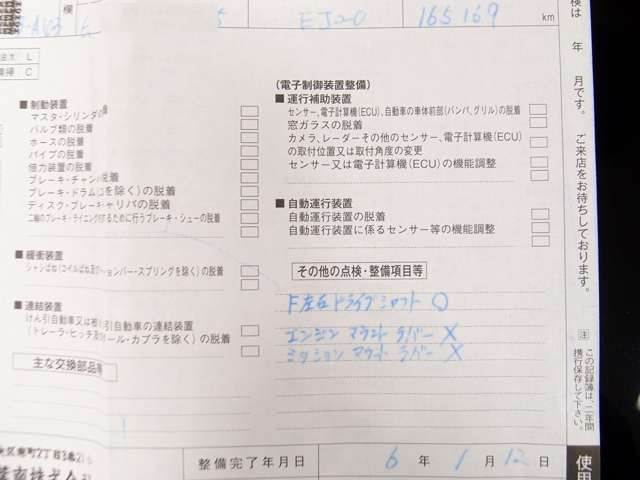 欄
EJ20
165169
km
L
C
(電子制御装置整備)
■ 制動装置
マスタ・シリンダの脱着
バルブ類の脱着
ホースの脱着
パイプの脱着
倍力装置の脱着
ブレーキ・チャンバの脱着
ブレーキ・ドラム を除く)の脱着
ディスク・ブレーキ・キャリパの脱着
二輪のブレーキ・ライニング するために行うブレーキ・シューの脱着
■ 緩衝装置
シャシばね(コイルばね及び ョンバー・スプリングを除く)の脱着
■ 連結装置
けん引自動車又は被けん引自動車の連結装置
(トレーラ・ヒッチ及び ール・カプラを除く)の脱着
主な交換部品等
■ 運行補助装置
センサー、電子計算機(ECU)、自動車の車体前部(バンパ、グリル)の脱着
窓ガラスの脱着
カメラ、レーダーその他のセンサー、電子計算機(ECU)
の取付位置又は取付角度の変更
センサー又は電子計算機(ECU)の機能調整
■ 自動運行装置
自動運行装置の脱着
自動運行装置に係るセンサー等の機能調整
その他の点検・整備項目等
F左右ドライブシャフト ○
エンジン マウント ラバー ×
ミッション マウント ラバー ×
整備完了年月日
6 年 1 月 12 日
検は 年 月です。 ご来店をお待ちしております。
注 この記録簿は、二年間
携行保存して下さい。
使用
区南町2丁目